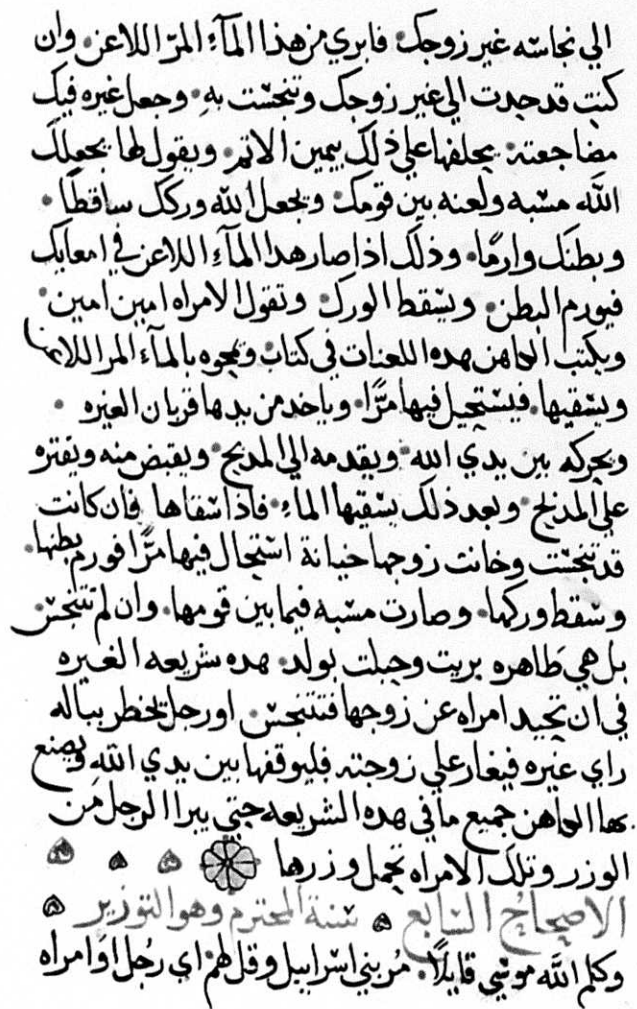 الي نجاسه غير زوجك فابري من هذا المآء المرّ اللاعن وان
كنت قد حدت الي غير زوجك وتنجست به وجعل غيره فيك
مضاجعته يحلفها علي ذلك بيمين الاثم ويقول لها يجعلك
الله مسبه ولعنه بين قومك ويجعل الله وركك ساقطًا
وبطنك وارمًا وذلك اذا صار هدا المآءِ اللاعن في امعايك
فيورم البطن ويسقط الورك وتقول الامراه امين امين
ويكتب الكاهن هده اللعنات في كتاب ويمحوه بالمآء المر اللاعن
ويسقيها فيستحيل فيها مرًّا وياخد من يدها قربان الغيره
ويحركه بين يدي الله ويقدمه الي المدبح ويقبض منه ويقتره
علي المدبح وبعد ذلك يسقيها الماء فاذا سقاها فان كانت
قد تنجست وخانت زوجها خيانة استحال فيها مرًّا فورم بطنها
وسقط وركها وصارت مسبه فيما بين قومها وان لم تتنجس
بل هي طاهره بريت وحبلت بولد هده شريعه الغيره
في ان تحيد امراه عن زوجها فتتنجس او رجل يخطر بباله
راي غيره فيغار علي زوجته فليوقفها بين يدي الله ويصنع
بها الكاهن جميع ما في هده الشريعه حتي يبرا الرجل من
الوزر وتلك الامراه تحمل وزرها
الاصحاح السابع سنة المحترم وهو التوزير
وكلم الله موسي قايلًا مُر بني اسراييل وقل لهم اي رجُل اوامراه